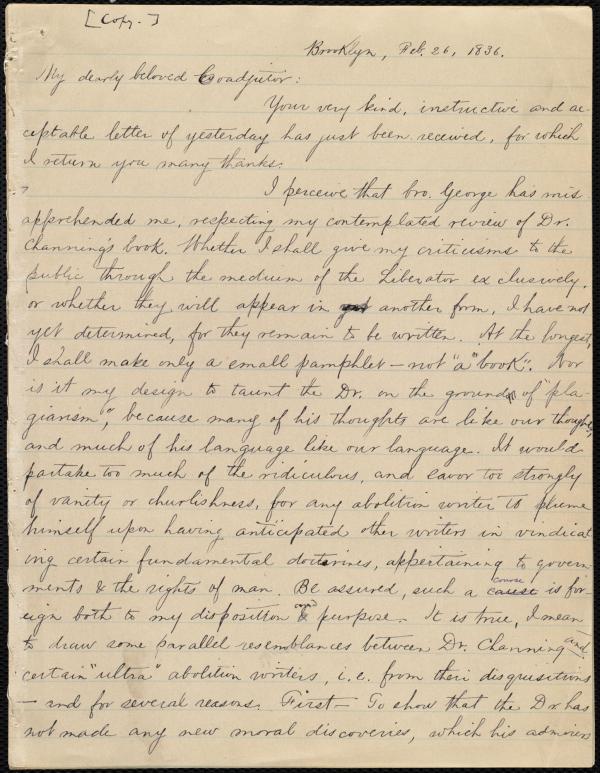 [Copy.]
Brooklyn, Feb. 26, 1836.
My dearly beloved Coadjutor:
Your very kind, instructive and ac
ceptable letter of yesterday has just been received, for which
I return you many thanks.
I perceive that bro. George has mis
apprehended me, respecting my contemplated review of Dr.
Channing's book. Whether I shall give my criticisms to the
public through the medium of the Liberator exclusively,
or whether they will appear in another form, I have not
yet determined, for they remain to be written. At the longest,
I shall make only a small pamphlet — not "a book". Nor
is it my design to taunt the Dr. on the ground of "pla-
giarism", because many of his thoughts are like our thoughts,
and much of his language like our language. It would
partake too much of the ridiculous, and savor too strongly
of vanity or churlishness, for any abolition writer to plume
himself upon having anticipated other writers in vindicat
ing certain fundamental doctrines, appertaining to govern-
ments & the rights of man. Be assured, such a course is for-
eign both to my disposition and purpose. It is true, I mean
to draw some parallel resemblances between Dr. Channing and
certain "ultra" abolition writers, i.e. from their disquisitions
— and for several reasons. First — To show that the Dr. has
not made any new moral discoveries, which his admirers